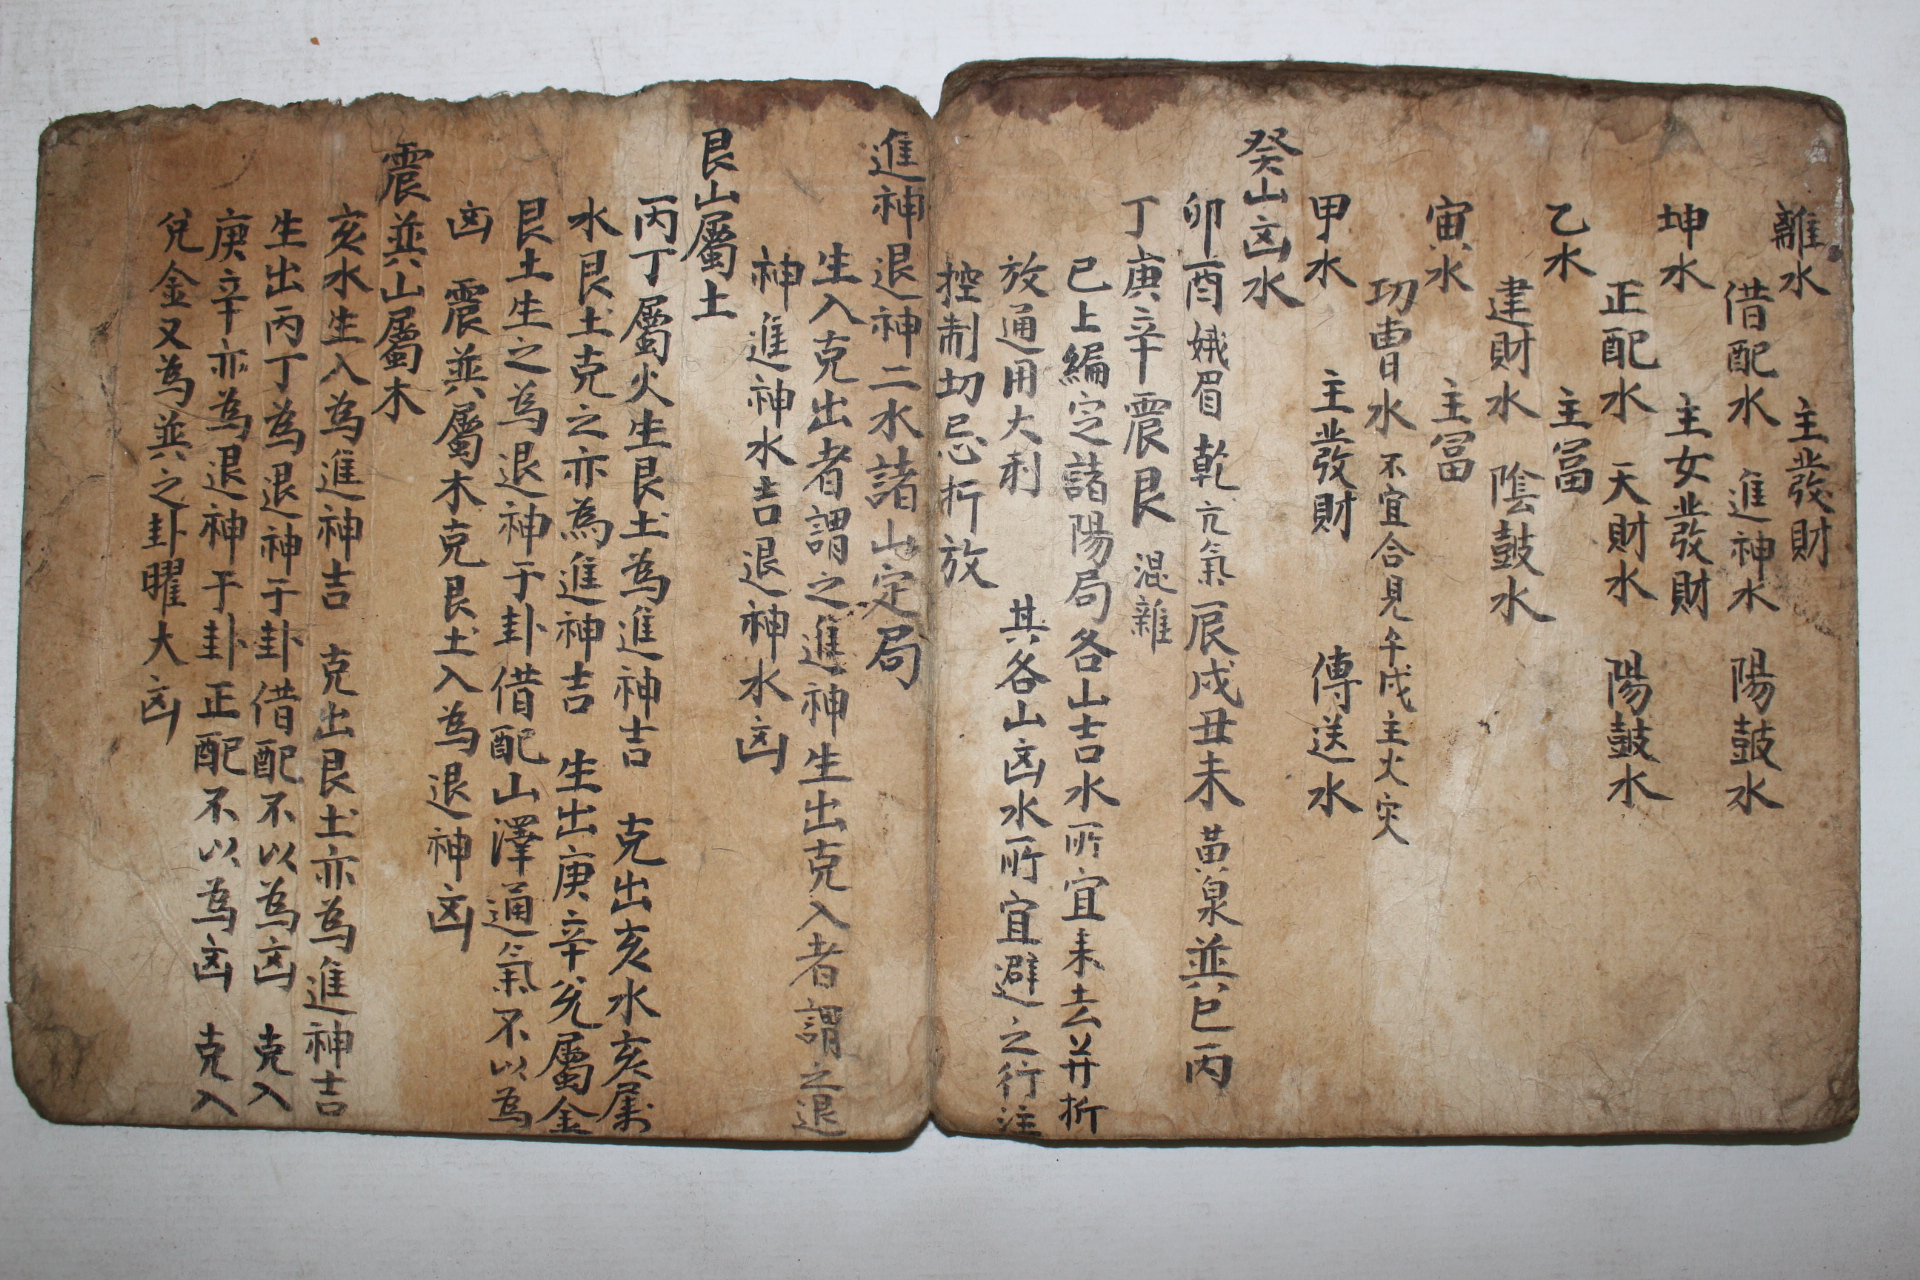 離水　主發財
借配水　進神水　陽鼓水
坤水　主女發財
正配水　天財水　陽鼓水
乙水　主冨
建財水　陰鼓水
寅水　主冨
功曹水　不宜合見午戌主火灾
甲水　主發財　傳送水
癸山凶水
卯酉娥眉　乾亢氣　辰戌丑未　黃泉　巽巳丙
丁庚辛震艮　混雜
已上編定諸陽局各山吉水所宜来去并折
放通用大利　其各山凶水所宜避之行注
控制切忌折放
進神退神二水諸山定局
生入克出者謂之進神生出克入者謂之退
神進神水吉退神水凶
艮山屬土
丙丁屬火生艮土為進神吉　克出亥水亥属
水艮土克之亦為進神吉　生出庚辛兊屬金
艮土生之為退神于卦借配山澤通氣不以為
凶　震巽屬木克艮土入為退神凶
震巽山屬木
亥水生入為進神吉　克出艮土亦為進神吉
生出丙丁為退神于卦借配不以為凶　克入
庚辛亦為退神于卦正配不以為凶　克入
兊金又為巽之卦曜大凶